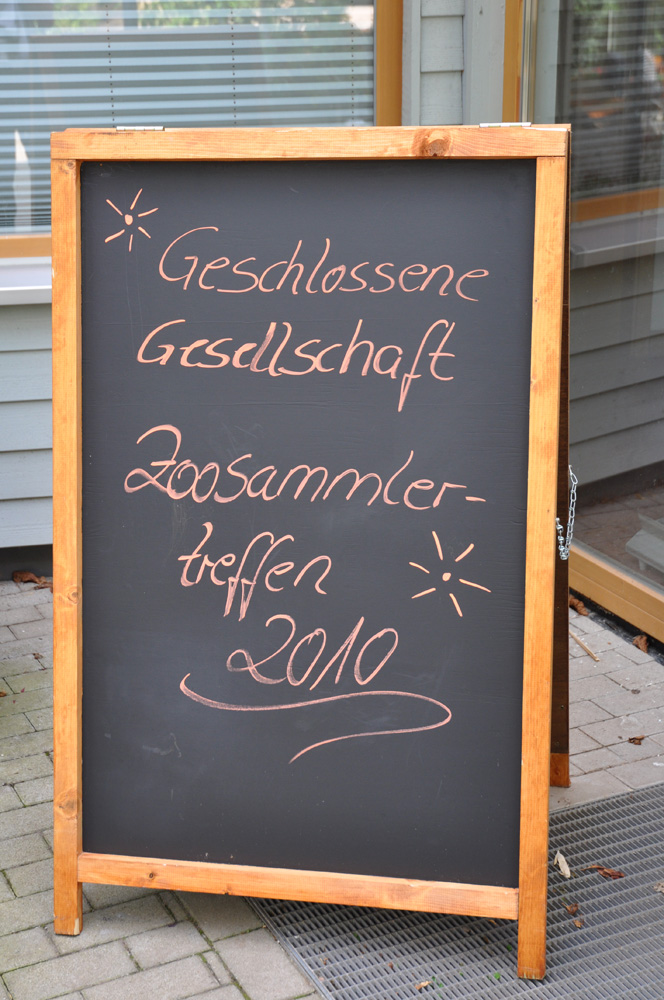 Geschlossene
Gesellschaft
Zoosammler-
treffen
2010